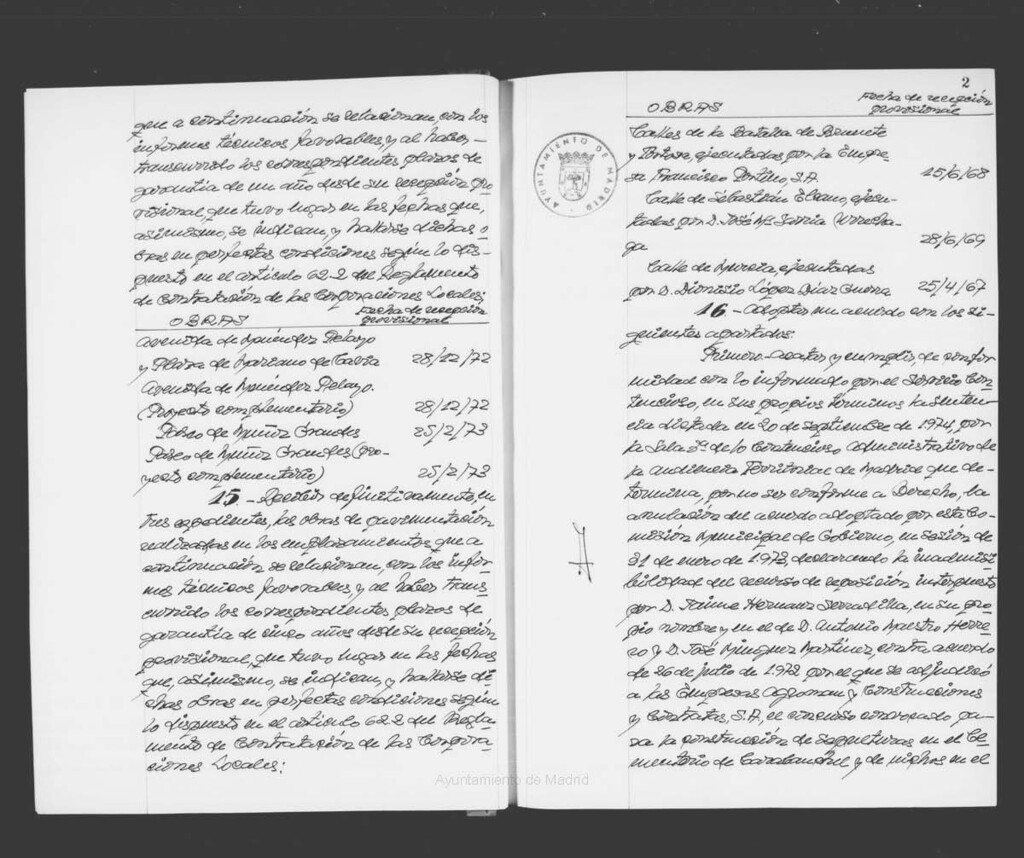 que a continuación se relacionan, con los
informes técnicos favorables, y al haber
transcurrido los correspondientes plazos de
garantía de un año desde su recepción pro-
visional, que tuvo lugar en las fechas que,
asimismo, se indican, y hallarse dichas o-
bras en perfectas condiciones según lo dis-
puesto en el artículo 62.2 del Reglamento
de Contratación de las Corporaciones Locales:
OBRAS
Fecha de recepción
provisional
Avenida de Menéndez Pelayo
y Plaza de Mariano de Cavia 28/12/72
Avenida de Menéndez Pelayo.
(Proyecto complementario) 28/12/72
Paseo de Muñoz Grandes 25/2/73
Paseo de Muñoz Grandes (pro-
yecto complementario) 25/2/73
15.- Recibir definitivamente, en
tres expedientes, las obras de pavimentación
realizadas en los emplazamientos que a
continuación se relacionan, con los infor-
mes técnicos favorables, y al haber trans
currido los correspondientes plazos de
garantía de cinco años desde su recepción
provisional, que tuvo lugar en las fechas
que, asimismo, se indican, y hallarse di
chas obras en perfectas condiciones según
lo dispuesto en el artículo 62.2 del Regla-
mento de Contratación de las Corpora-
ciones Locales:
2
OBRAS
Fecha de recepción
provisional
AYUNTAMIENTO DE MADRID
Calles de la Batalla de Brunete
y ejecutadas por la Empre-
sa Francisco S.A. 15/6/68
Calle de Sebastián Elcano, ejecu-
tadas por D. José Mª Sarria Urrecha-
ga 28/6/69
Calle de Murcia, ejecutadas
por D. Dionisio López Díaz Guerra 25/4/67
16.- Adoptar un acuerdo con los si-
guientes apartados:
Primero.- Acatar y cumplir de confor
midad con lo informado por el Servicio Con-
tencioso, en sus propios términos la senten-
cia dictada en 20 de septiembre de 1974, por
la Sala de lo Contencioso administrativo de
la Audiencia Territorial de Madrid que de-
termina, por no ser conforme a Derecho, la
anulación del acuerdo adoptado por esta Co-
misión Municipal de Gobierno, en sesión de
31 de enero de 1973, declarando la inadmisi
bilidad del recurso de reposición interpuesto
por D. Jaime Hernanz Serradilla, en su pro
pio nombre y en el de D. Antonio Maestro Herre-
ro y D. José Mínguez Martínez, contra acuerdo
de 26 de julio de 1972 por el que se adjudicó
a las Empresas Agroman y Construcciones
y Contratas, S.A., el concurso convocado pa-
ra la construcción de sepulturas en el Ce-
menterio de Carabanchel y de nichos en el
Ayuntamiento de Madrid